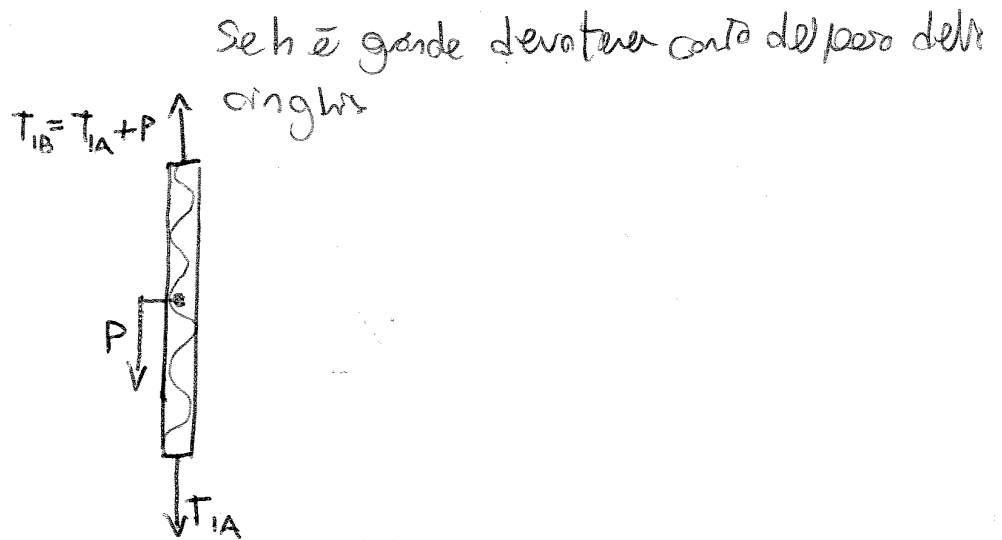 Se h è grande devo tener conto del peso della
cinghia
T1B = T1A + P
P
T1A